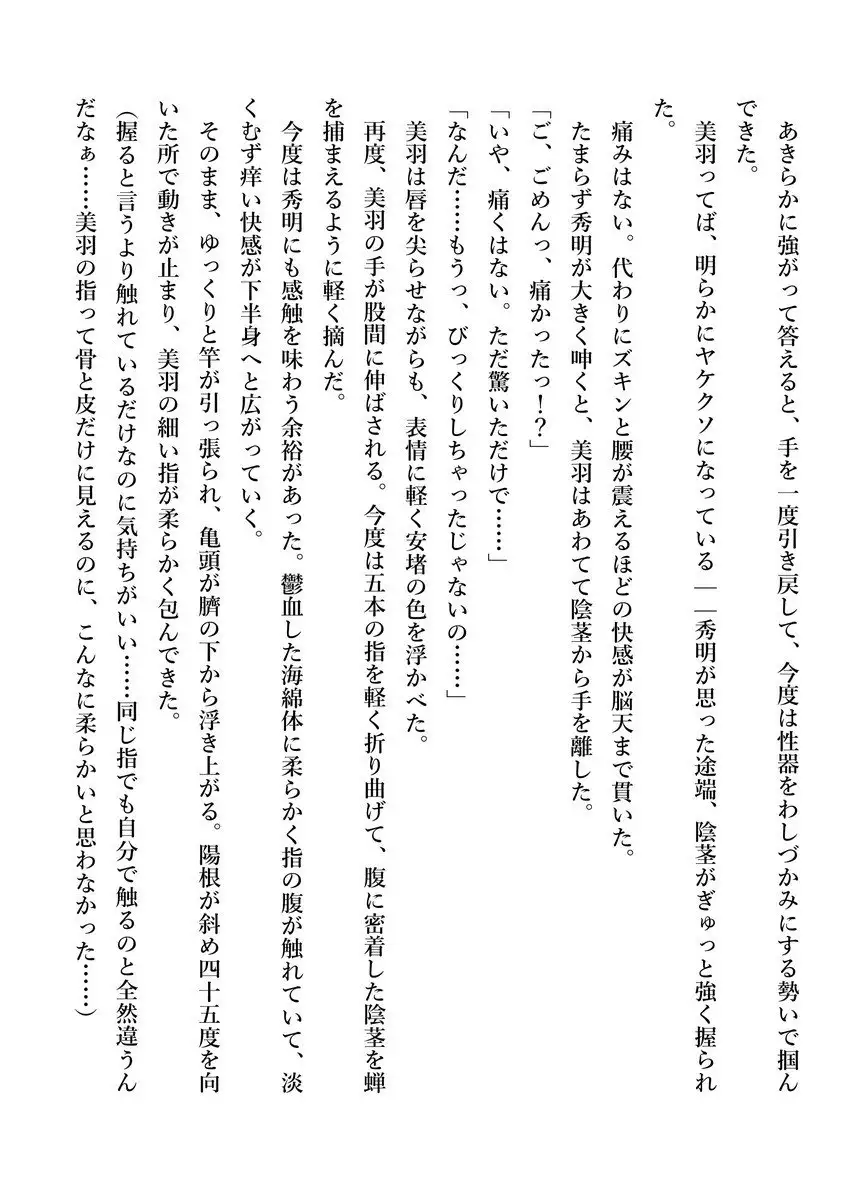 あきらかに強がって答えると、手を一度引き戻して、今度は性器をわしづかみにする勢いで掴ん
できた。
　美羽ってば、明らかにヤケクソになっている――秀明が思った途端、陰茎がぎゅっと強く握られ
た。
　痛みはない。代わりにズキンと腰が震えるほどの快感が脳天まで貫いた。
　たまらず秀明が大きく呻くと、美羽はあわてて陰茎から手を離した。
「ご、ごめんっ、痛かったっ！？」
「いや、痛くはない。ただ驚いただけで……」
「なんだ……もうっ、びっくりしちゃったじゃないの……」
　美羽は唇を尖らせながらも、表情に軽く安堵の色を浮かべた。
　再度、美羽の手が股間に伸ばされる。今度は五本の指を軽く折り曲げて、腹に密着した陰茎を蝉
を捕まえるように軽く摘んだ。
　今度は秀明にも感触を味わう余裕があった。鬱血した海綿体に柔らかく指の腹が触れていて、淡
くむず痒い快感が下半身へと広がっていく。
　そのまま、ゆっくりと竿が引っ張られ、亀頭が臍の下から浮き上がる。陽根が斜め四十五度を向
いた所で動きが止まり、美羽の細い指が柔らかく包んできた。
(握ると言うより触れているだけなのに気持ちがいい……同じ指でも自分で触るのと全然違うん
だなぁ……美羽の指って骨と皮だけに見えるのに、こんなに柔らかいと思わなかった……)